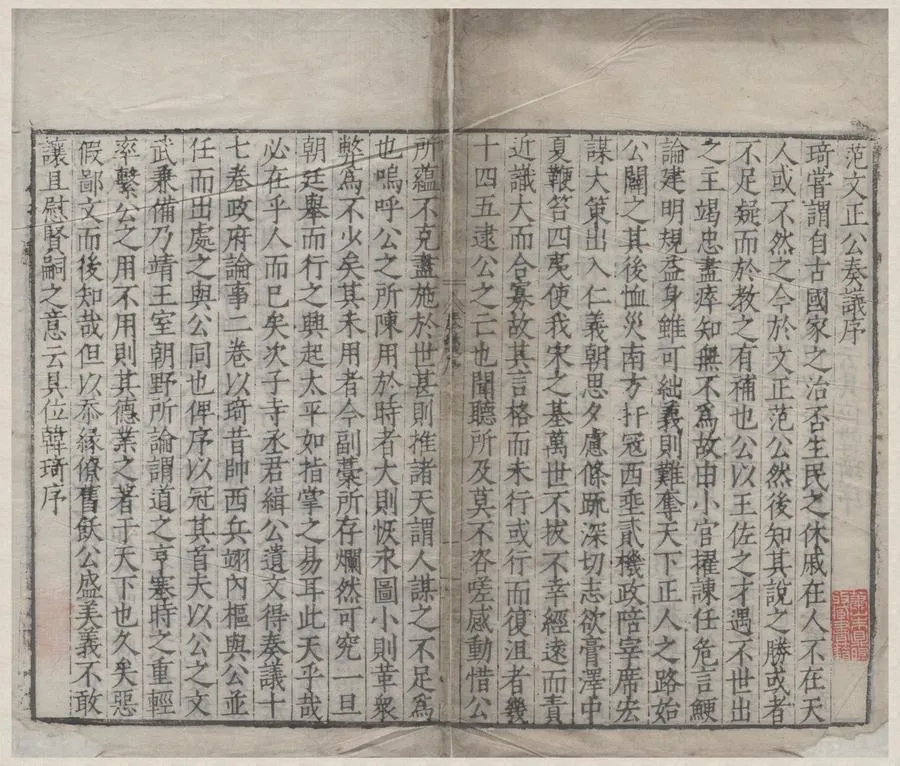 范文正公奏議序
琦嘗謂自古國家之治否生民之休戚在人不在天
人或不然之今於文正范公然後知其說之勝或者
不足疑而於教之有補也公以王佐之才遇不世出
之主竭忠盡瘁知無不為故由小官擢諫任危言鯁
論建明規益身雖可絀義則難奪天下正人之路始
公闢之其後恤災南方扞冦西垂貳機政陪宰席宏
謀大策出入仁義朝思夕慮條疏深切志欲膏澤中
夏鞭笞四夷使我宋之基萬世不拔不幸經遠而責
近識大而合寡故其言格而未行或行而復沮者幾
十四五逮公之亡也聞聽所及莫不咨嗟感動惜公
所蘊不克盡施於世甚則推諸天謂人謀之不足為
也嗚呼公之所陳用於時者大則恢永圖小則革衆
弊為不少矣其未用者今副藁所存爛然可究一旦
朝廷舉而行之興起太平如指掌之易耳此天乎哉
必在乎人而已矣次子寺丞君緝公遺文得奏議十
七卷政府論事二卷以琦昔帥西兵翊內樞與公並
任而出處之與公同也俾序以冠其首夫以公之文
武兼備乃靖王室朝野所論謂道之亨塞時之重輕
率繫公之用不用則其德業之著于天下也久矣惡
假鄙文而後知哉但以忝縁僚舊飫公盛美義不敢
讓且慰賢嗣之意云具位韓琦序